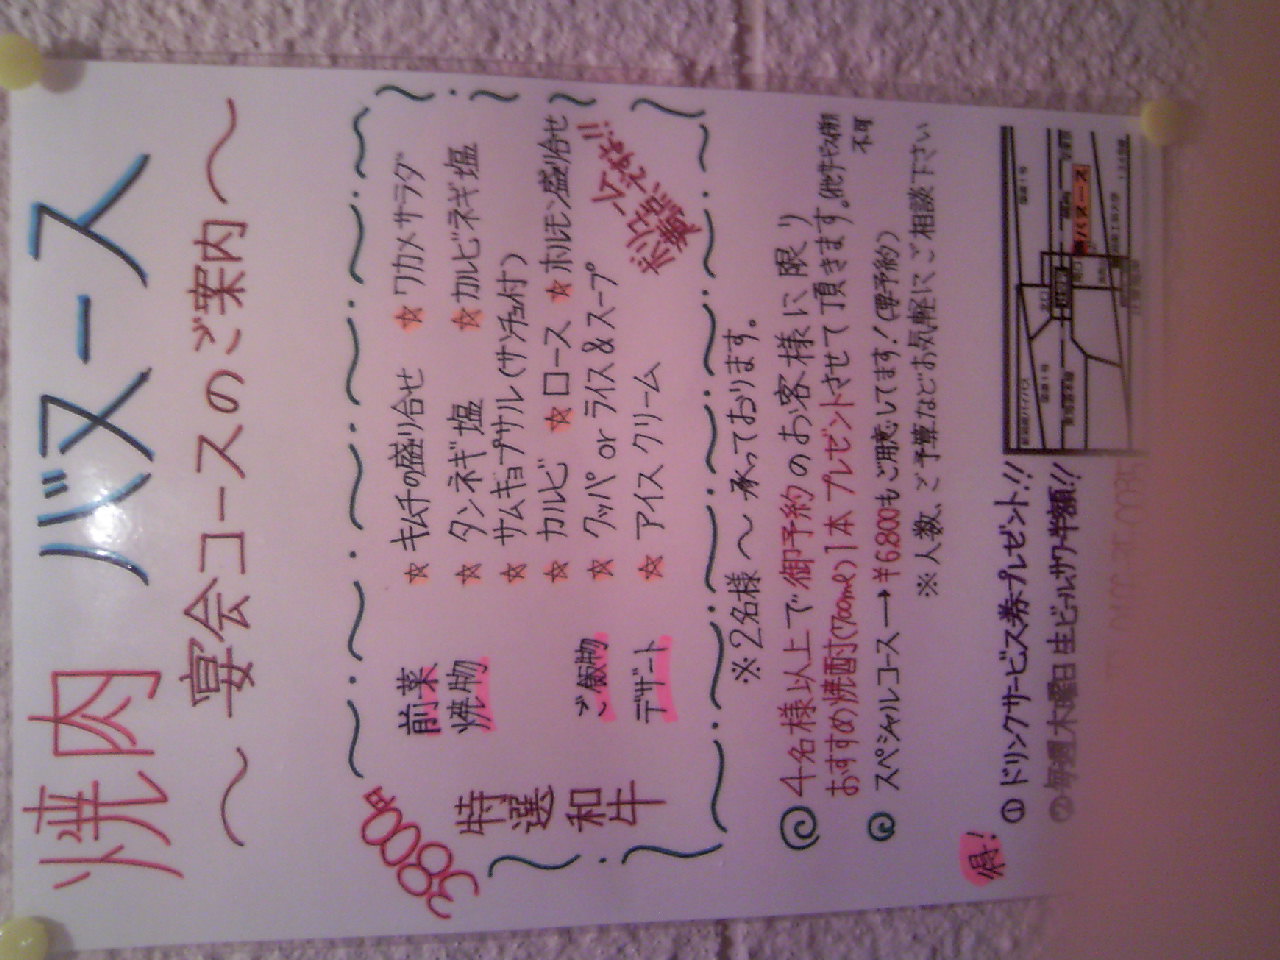 焼肉 バヌース
〜宴会コースのご案内〜
3800円
特選和牛
前菜 ☆キムチの盛り合せ ☆ワカメサラダ
焼物 ☆タンネギ塩 ☆カルビネギ塩
☆サムギョプサル(サンチュ付)
☆カルビ ☆ロース ☆ホルモン盛り合せ
ご飯物 ☆クッパ or ライス&スープ
デザート ☆アイスクリーム
ボリューム満点ですよ!!
※2名様〜承っております。
4名様以上で御予約のお客様に限り
おすすめ焼酎(700ml)1本プレゼントさせて頂きます。(他サービス併用不可
スペシャルコース→¥6,800もご用意してます!(要予約)
※人数、ご予算などお気軽にご相談下さい
得!
①ドリンクサービス券プレゼント!!
②毎週木曜日 生ビール、サワー半額!!
バヌース